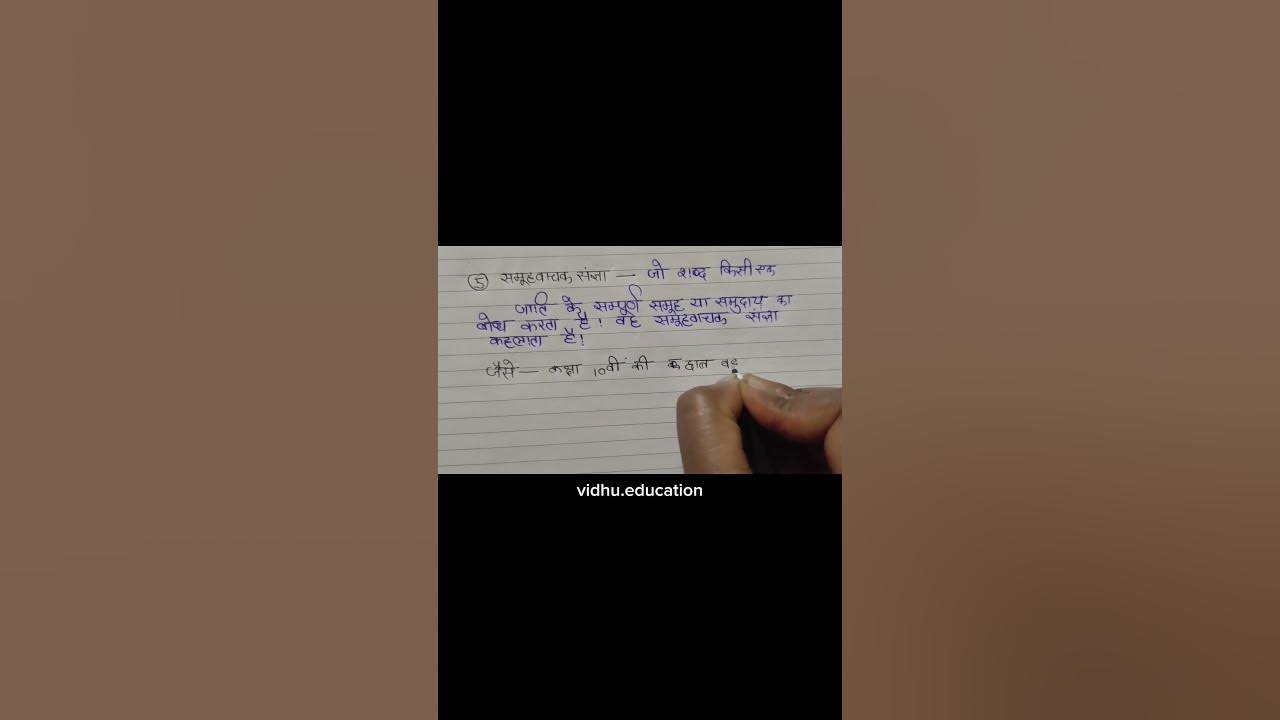 ⑤ समूहवाचक संज्ञा — जो शब्द किसी एक
जाति के सम्पूर्ण समूह या समुदाय का
बोध करता है! वह समूहवाचक संज्ञा
कहलाता है!
जैसे — कक्षा 10वीं की
vidhu.education